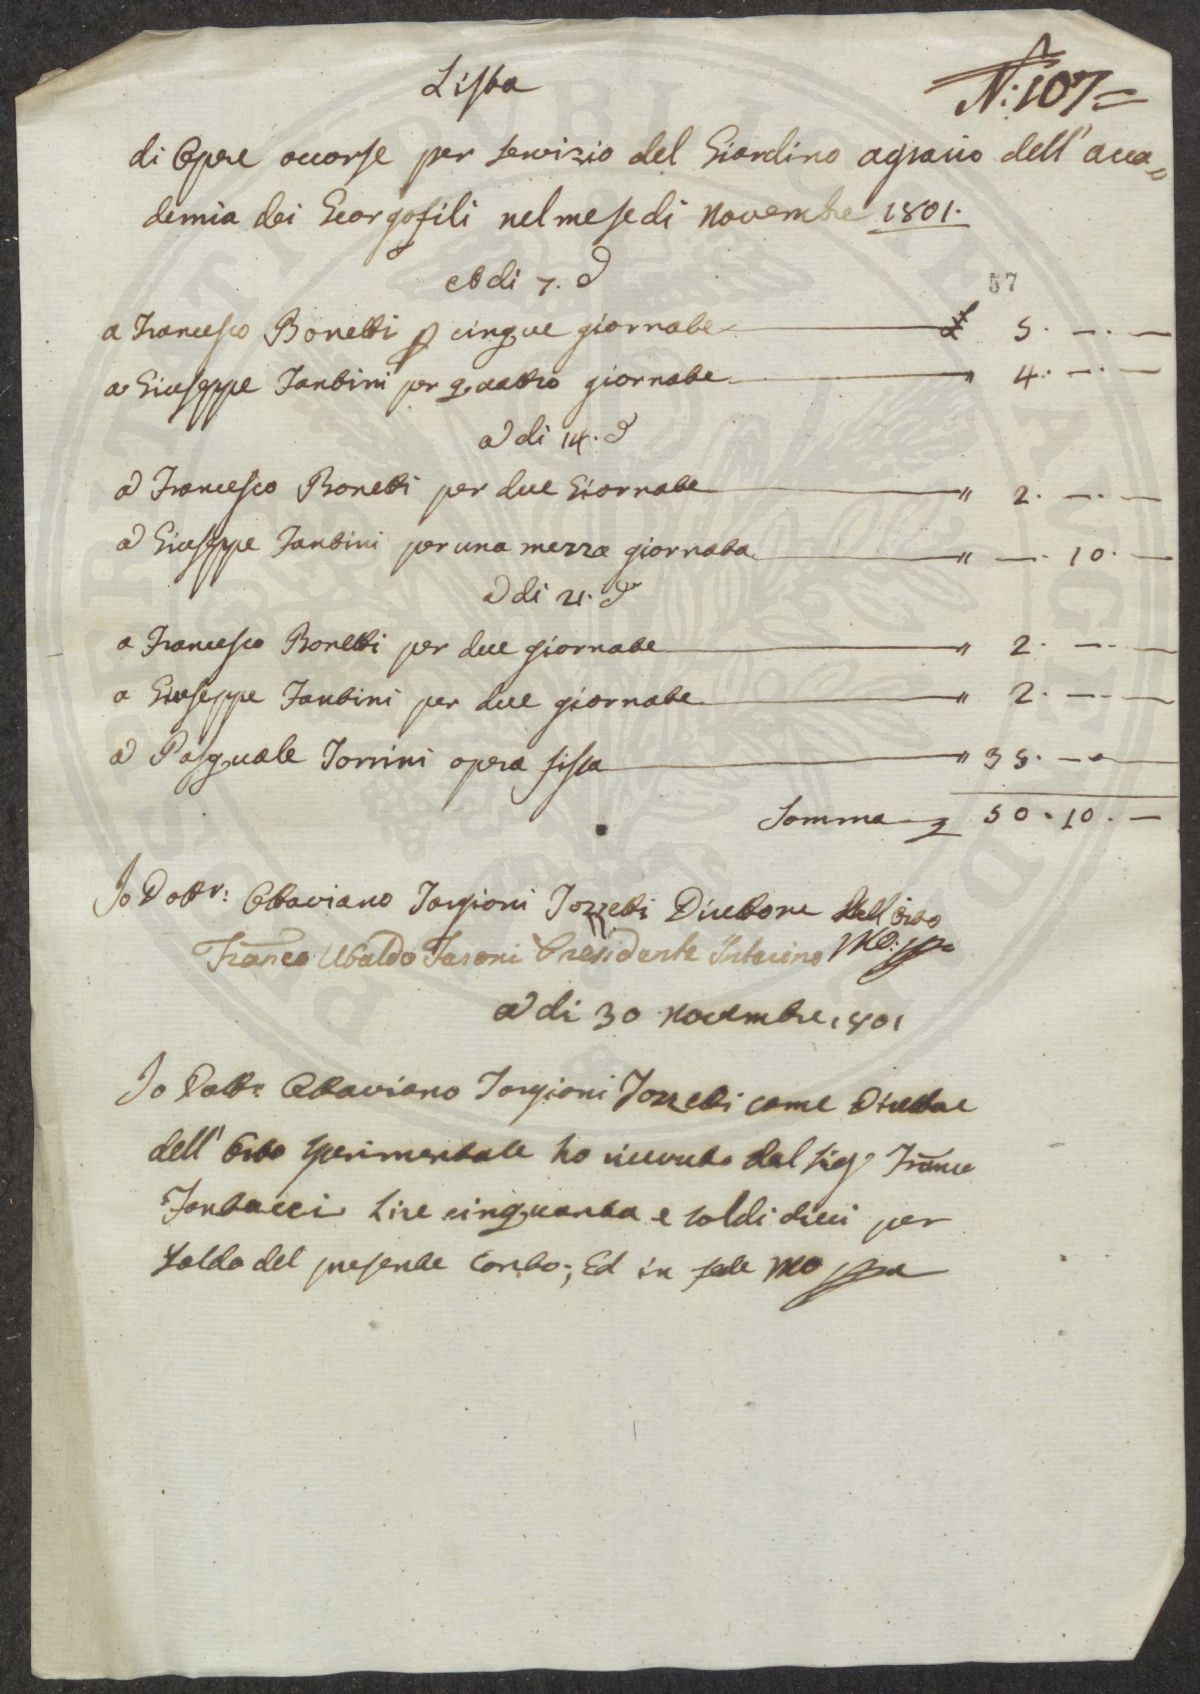 Lista
N.º 107 =
di Opere occorse per servizio del Giardino agrario dell' acca=
demia dei Georgofili nel mese di Novembre 1801.
57
A dì 7. d.º
a Francesco Bonetti p cinque giornate £ 5. —. —
a Giuseppe Fantini per quattro giornate " 4. —. —
a dì 14. d.º
a Francesco Bonetti per due Giornate " 2. —. —
a Giuseppe Fantini per una mezza giornata " —. 10. —
a dì 21. d.º
a Francesco Bonetti per due giornate " 2. —. —
a Giuseppe Fantini per due giornate " 2. —. —
a Pasquale Torrini opera fissa " 35. —. —
Somma £ 50. 10. —
Io Dott.r: Ottaviano Targioni Tozzetti Direttore dell' Orto
Franco Ubaldo Feroni Presidente Interino Mº: ppa
a dì 30 Novembre 1801
Io Dott.r Ottaviano Targioni Tozzetti come Direttore
dell' Orto sperimentale ho ricevuto dal Sig.º Franco
Lire cinquanta e soldi dieci per
saldo del presente Conto; Ed in fede Mº ppa